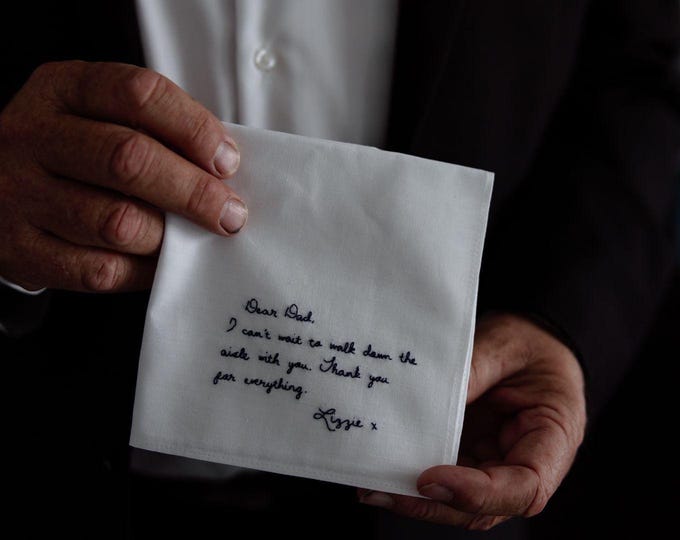 Dear Dad,
I can't wait to walk down the
aisle with you. Thank you
for everything.
Lizzie x